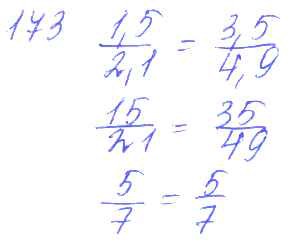 173 1,5/2,1 = 3,5/4,9
15/21 = 35/49
5/7 = 5/7